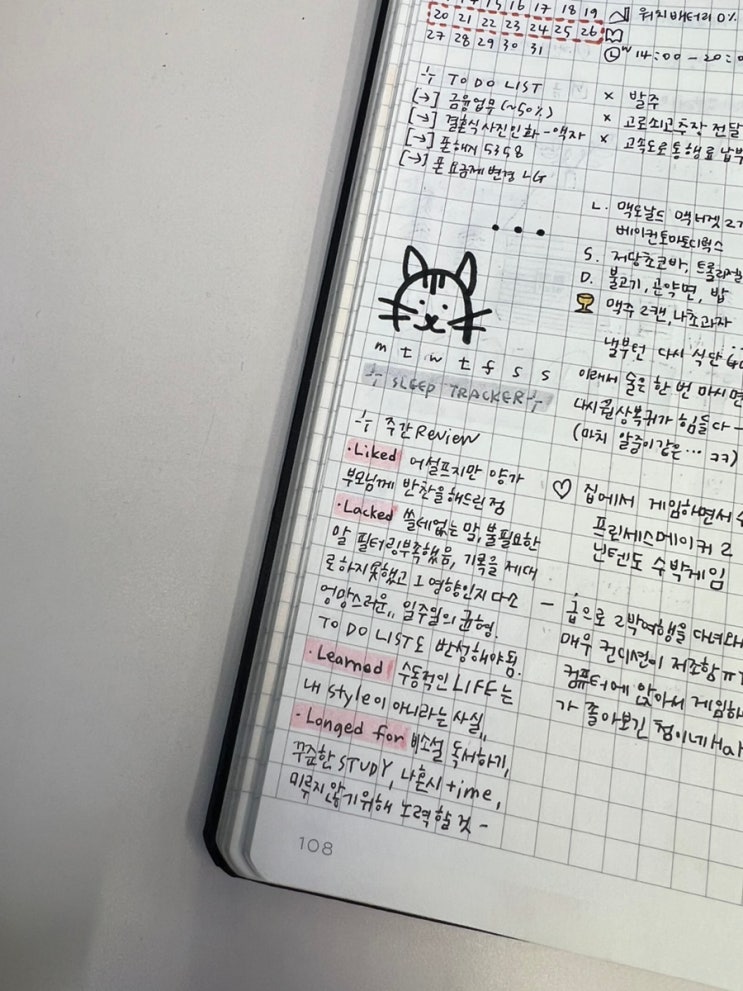 14 15 16 17 18 19
20 21 22 23 24 25 26
27 28 29 30 31
÷ TO DO LIST
[→] 금융업무 (~50%)
[→] 결혼식 사진인화 - 액자
[→] 폰해지 5358
[→] 폰 요금제 변경 LG
m t w t f s s
÷ SLEEP TRACKER ÷
÷ 주간 Review
·Liked 어설프지만 양가
부모님께 반찬을해드린 점
·Lacked 쓸데없는 말, 불필요한
말 필터링부족했음, 기록을 제대
로하지못했고 그 영향인지 다소
엉망스러운,, 일주일의 균형.
TO DO LIST도 반성해야됨.
·Learned 수동적인 LIFE는
내 style이 아니라는 사실,,
·Longed for 비소설 독서하기,
꾸준한 STUDY, 나혼시 time,
미루지않기위해 노력할 것 -
108
워치 배터리 0%
W 14:00 - 20:0
× 발주
× 고로쇠고추장 전달
× 고속도로통행료 납부
L. 맥도날드 맥너겟 2
베이컨토마토디럭스
S. 저당초코바,
D. 불고기, 곤약면, 밥
맥주 2캔, 나초과자
낼부턴 다시 식단
이래서 술은 한 번 마시면
다시 원상복귀가 힘들다 -
(마치 알중이같은... ㅋㅋ)
♡ 집에서 게임하면서
프린세스메이커 2
닌텐도 수박게임
- 급으로 2박여행을 다녀와
매우 컨디션이 저조함
컴퓨터에 앉아서 게임하
가 졸아보긴 첨이네